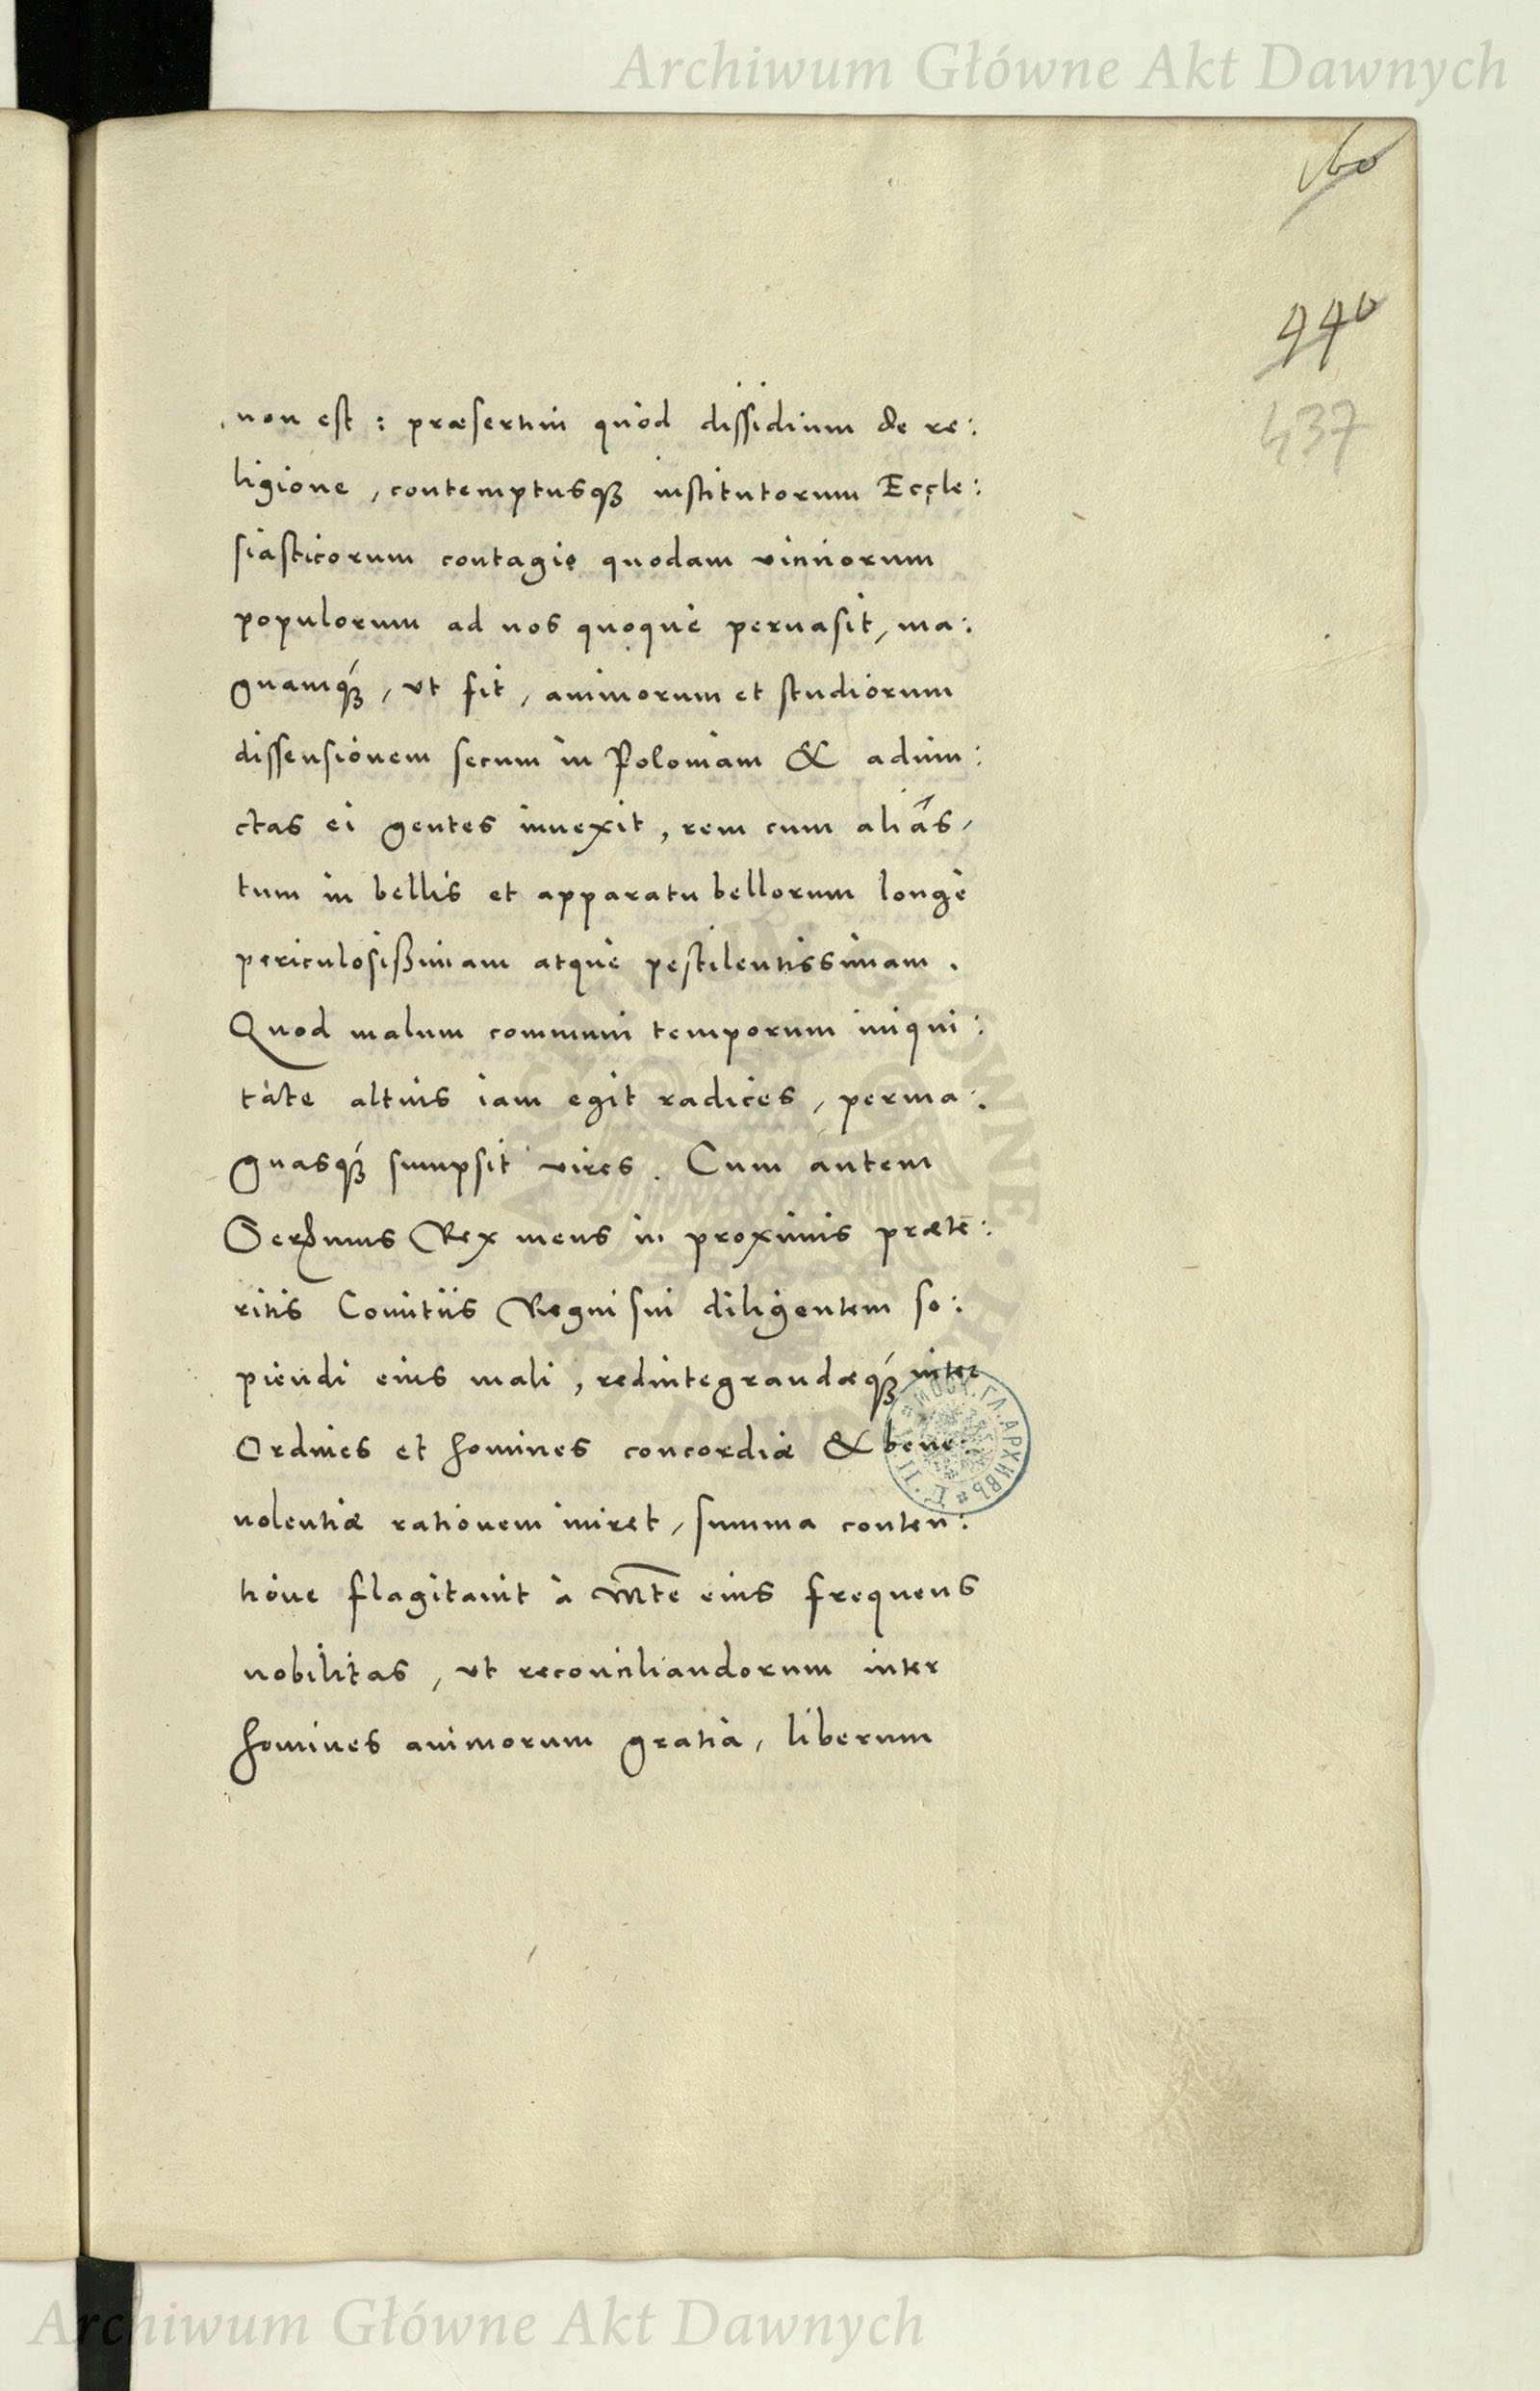 Archiwum Główne Akt Dawnych
440
437
non est : præsertim quòd dissidium de re:
ligione, contemptusq́ꝫ institutorum Eccle:
siasticorum contagio quodam vicinorum
populorum ad nos quoque peruasit, ma:
gnamq́ꝫ, vt fit, animorum et studiorum
dissensionem secum in Poloniam & adiun:
ctas ei gentes inuexit, rem cum aliâs,
tum in bellis et apparatu bellorum longè
periculosißimam atque pestilentissimam.
Quod malum communi temporum iniqui:
tate altius iam egit radices, perma:
gnasq́ꝫ sumpsit vires. Cum autem
Serꝫmus Rex meus in proximis prætē:
ritis Comitiis Regni sui diligentem so:
piendi eius mali, redintegrandæq́ꝫ inter
Ordines et homines concordiæ & bene:
uolentiæ rationem iniret, summa conten:
tione flagitauit à Mte eius frequens
nobilitas, vt reconciliandorum inter
homines animorum gratia, liberum
МОСК. ГЛ. АРХИВЪ
Archiwum Główne Akt Dawnych